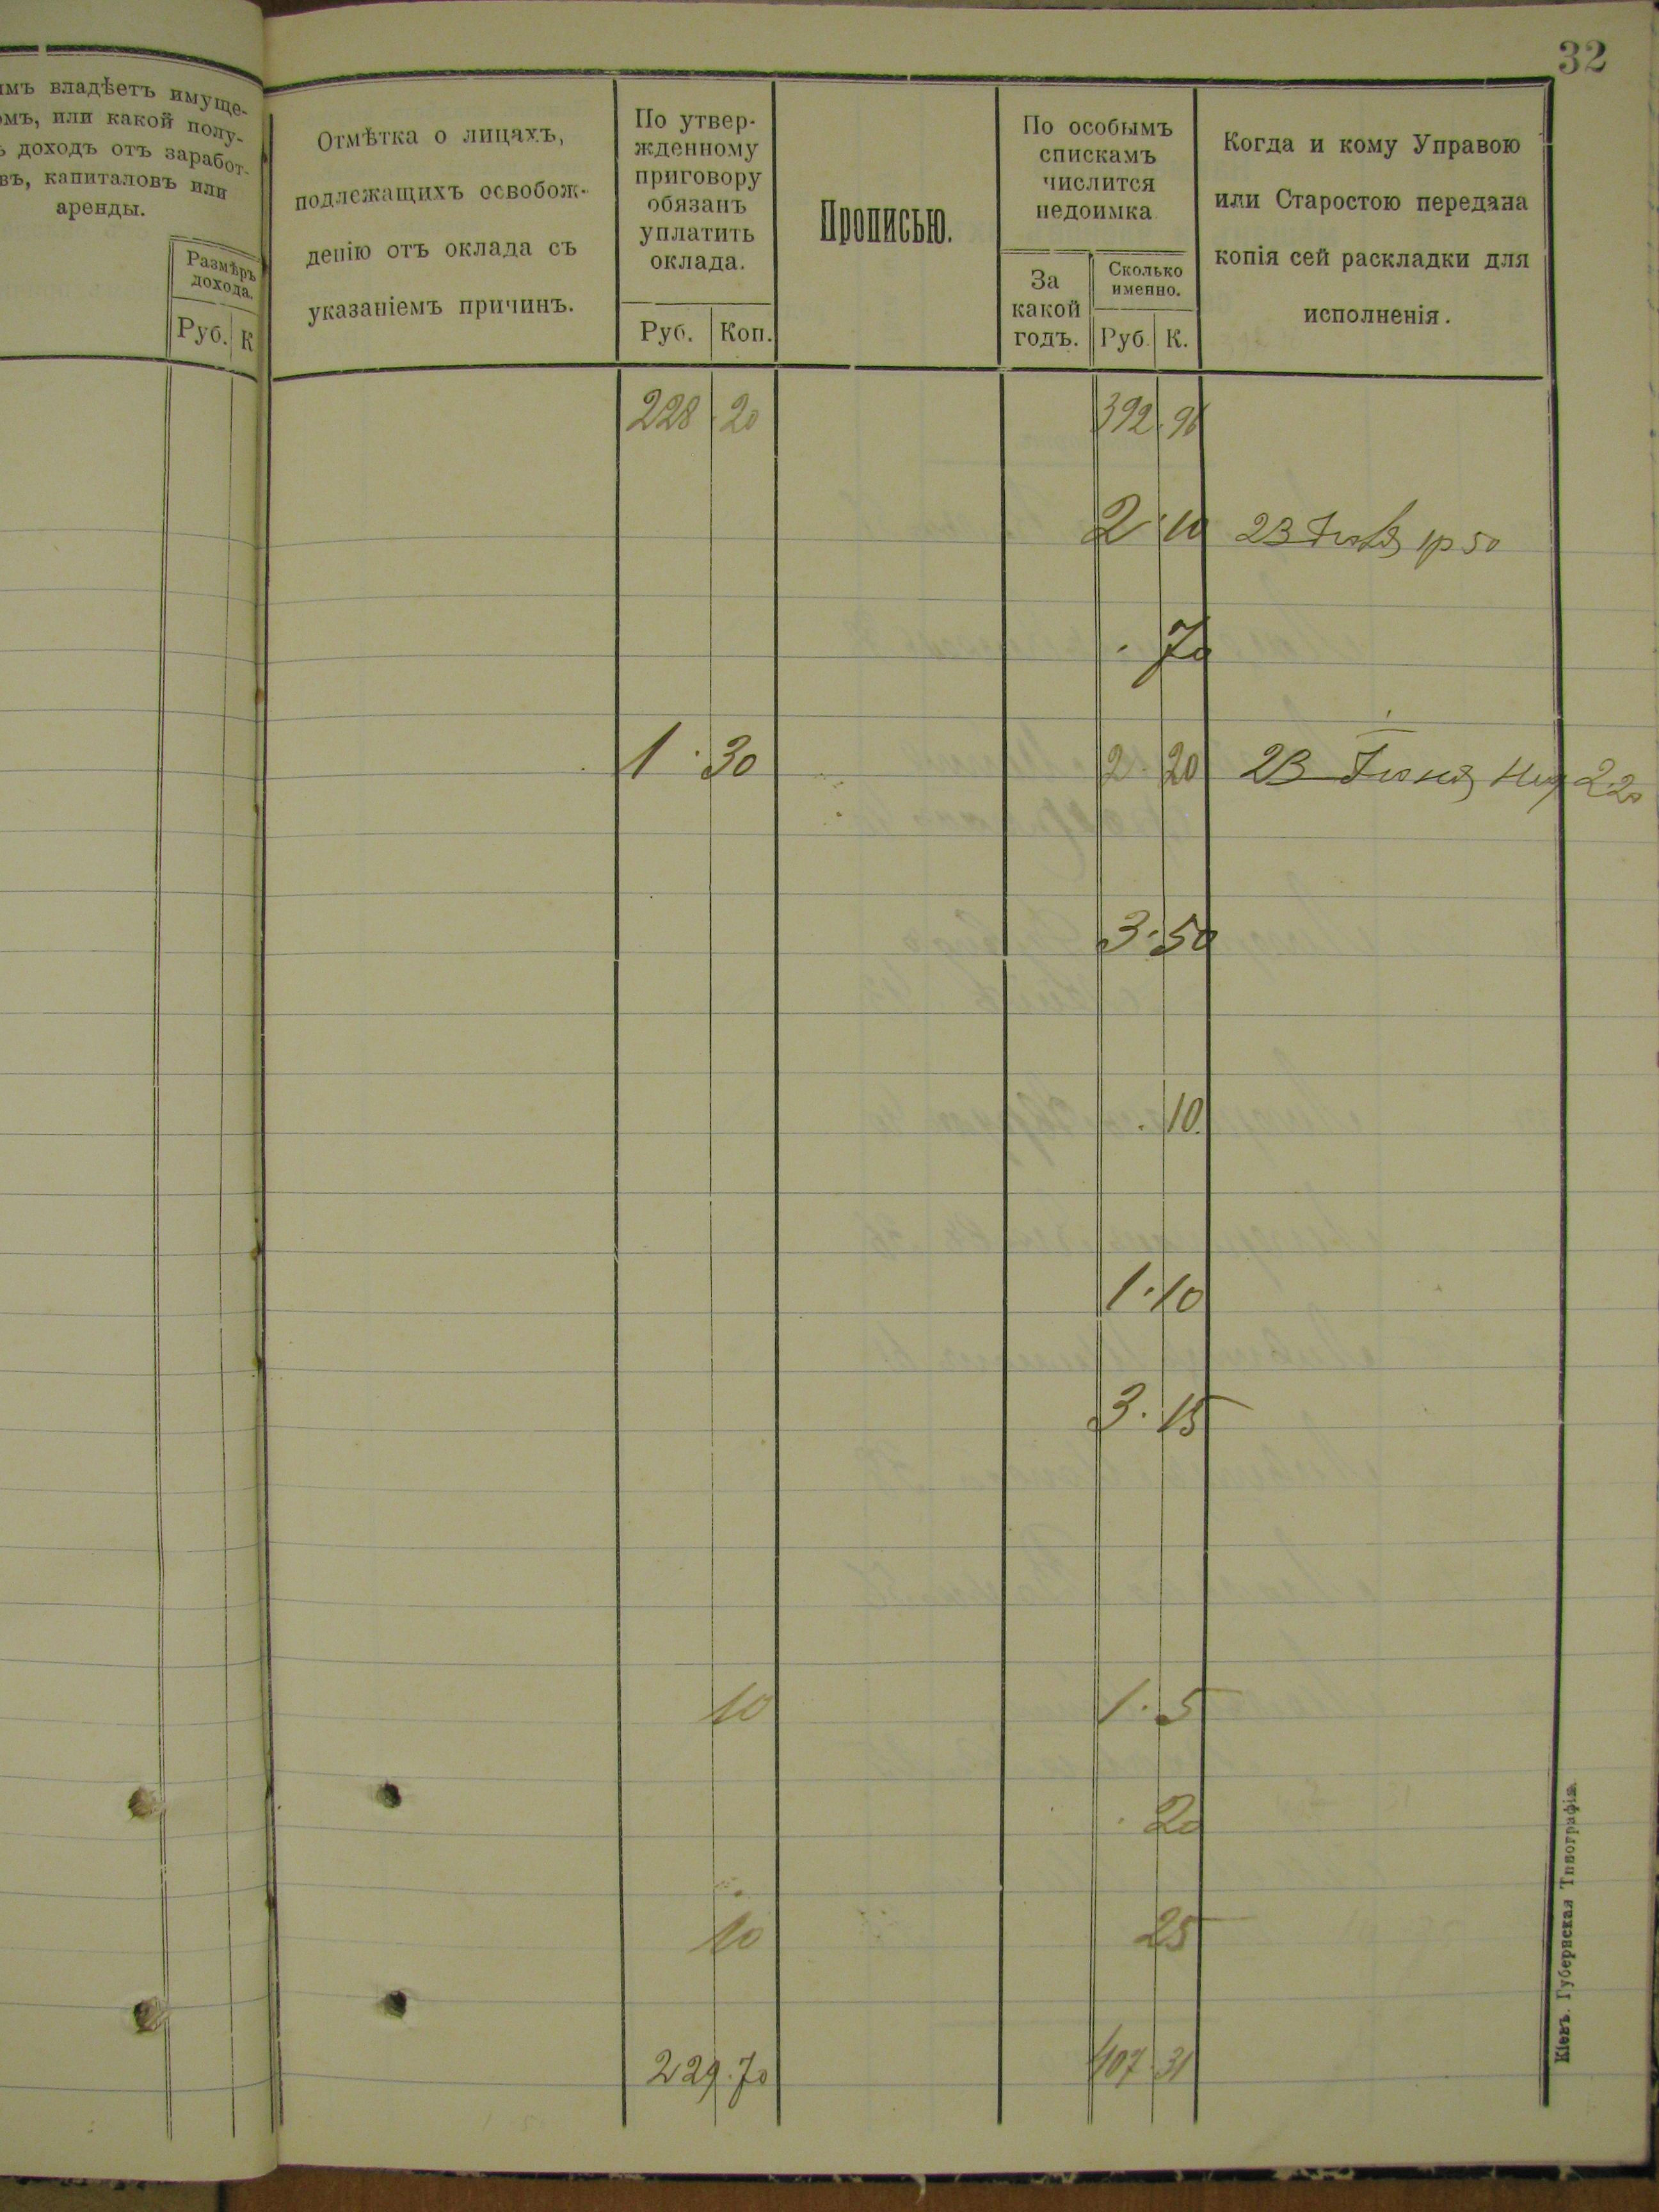 32
имъ владѣетъ имуще-
омъ, или какой полу-
ъ доходъ отъ заработ-
въ, капиталовъ или
аренды.
Размѣръ
дохода.
Руб. К
Отмѣтка о лицахъ,
подлежащихъ освобож-
денію отъ оклада съ
указаніемъ причинъ.
По утвер-
жденному
приговору
обязанъ
уплатить
оклада.
Руб. Коп.
Прописью.
По особымъ
спискамъ
числится
недоимка
За
какой
годъ.
Сколько
именно.
Руб. К.
Когда и кому Управою
или Старостою передана
копія сей раскладки для
исполненія.
228 20 392 96
2 10 23 1р 50
70
1 30 2 20 23 2 20
3 50
10
1 10
3 15
10 1 5
20
10 25
229 70 407 31
Кіевъ. Губернская Типографія.